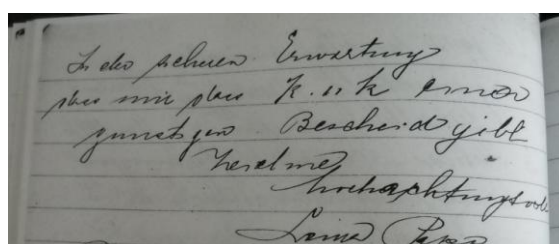 In der sicheren Erwartung
das mir das K. u k einen
gunstigen Bescheid gibt
Zeichne
hochachtungsvoll